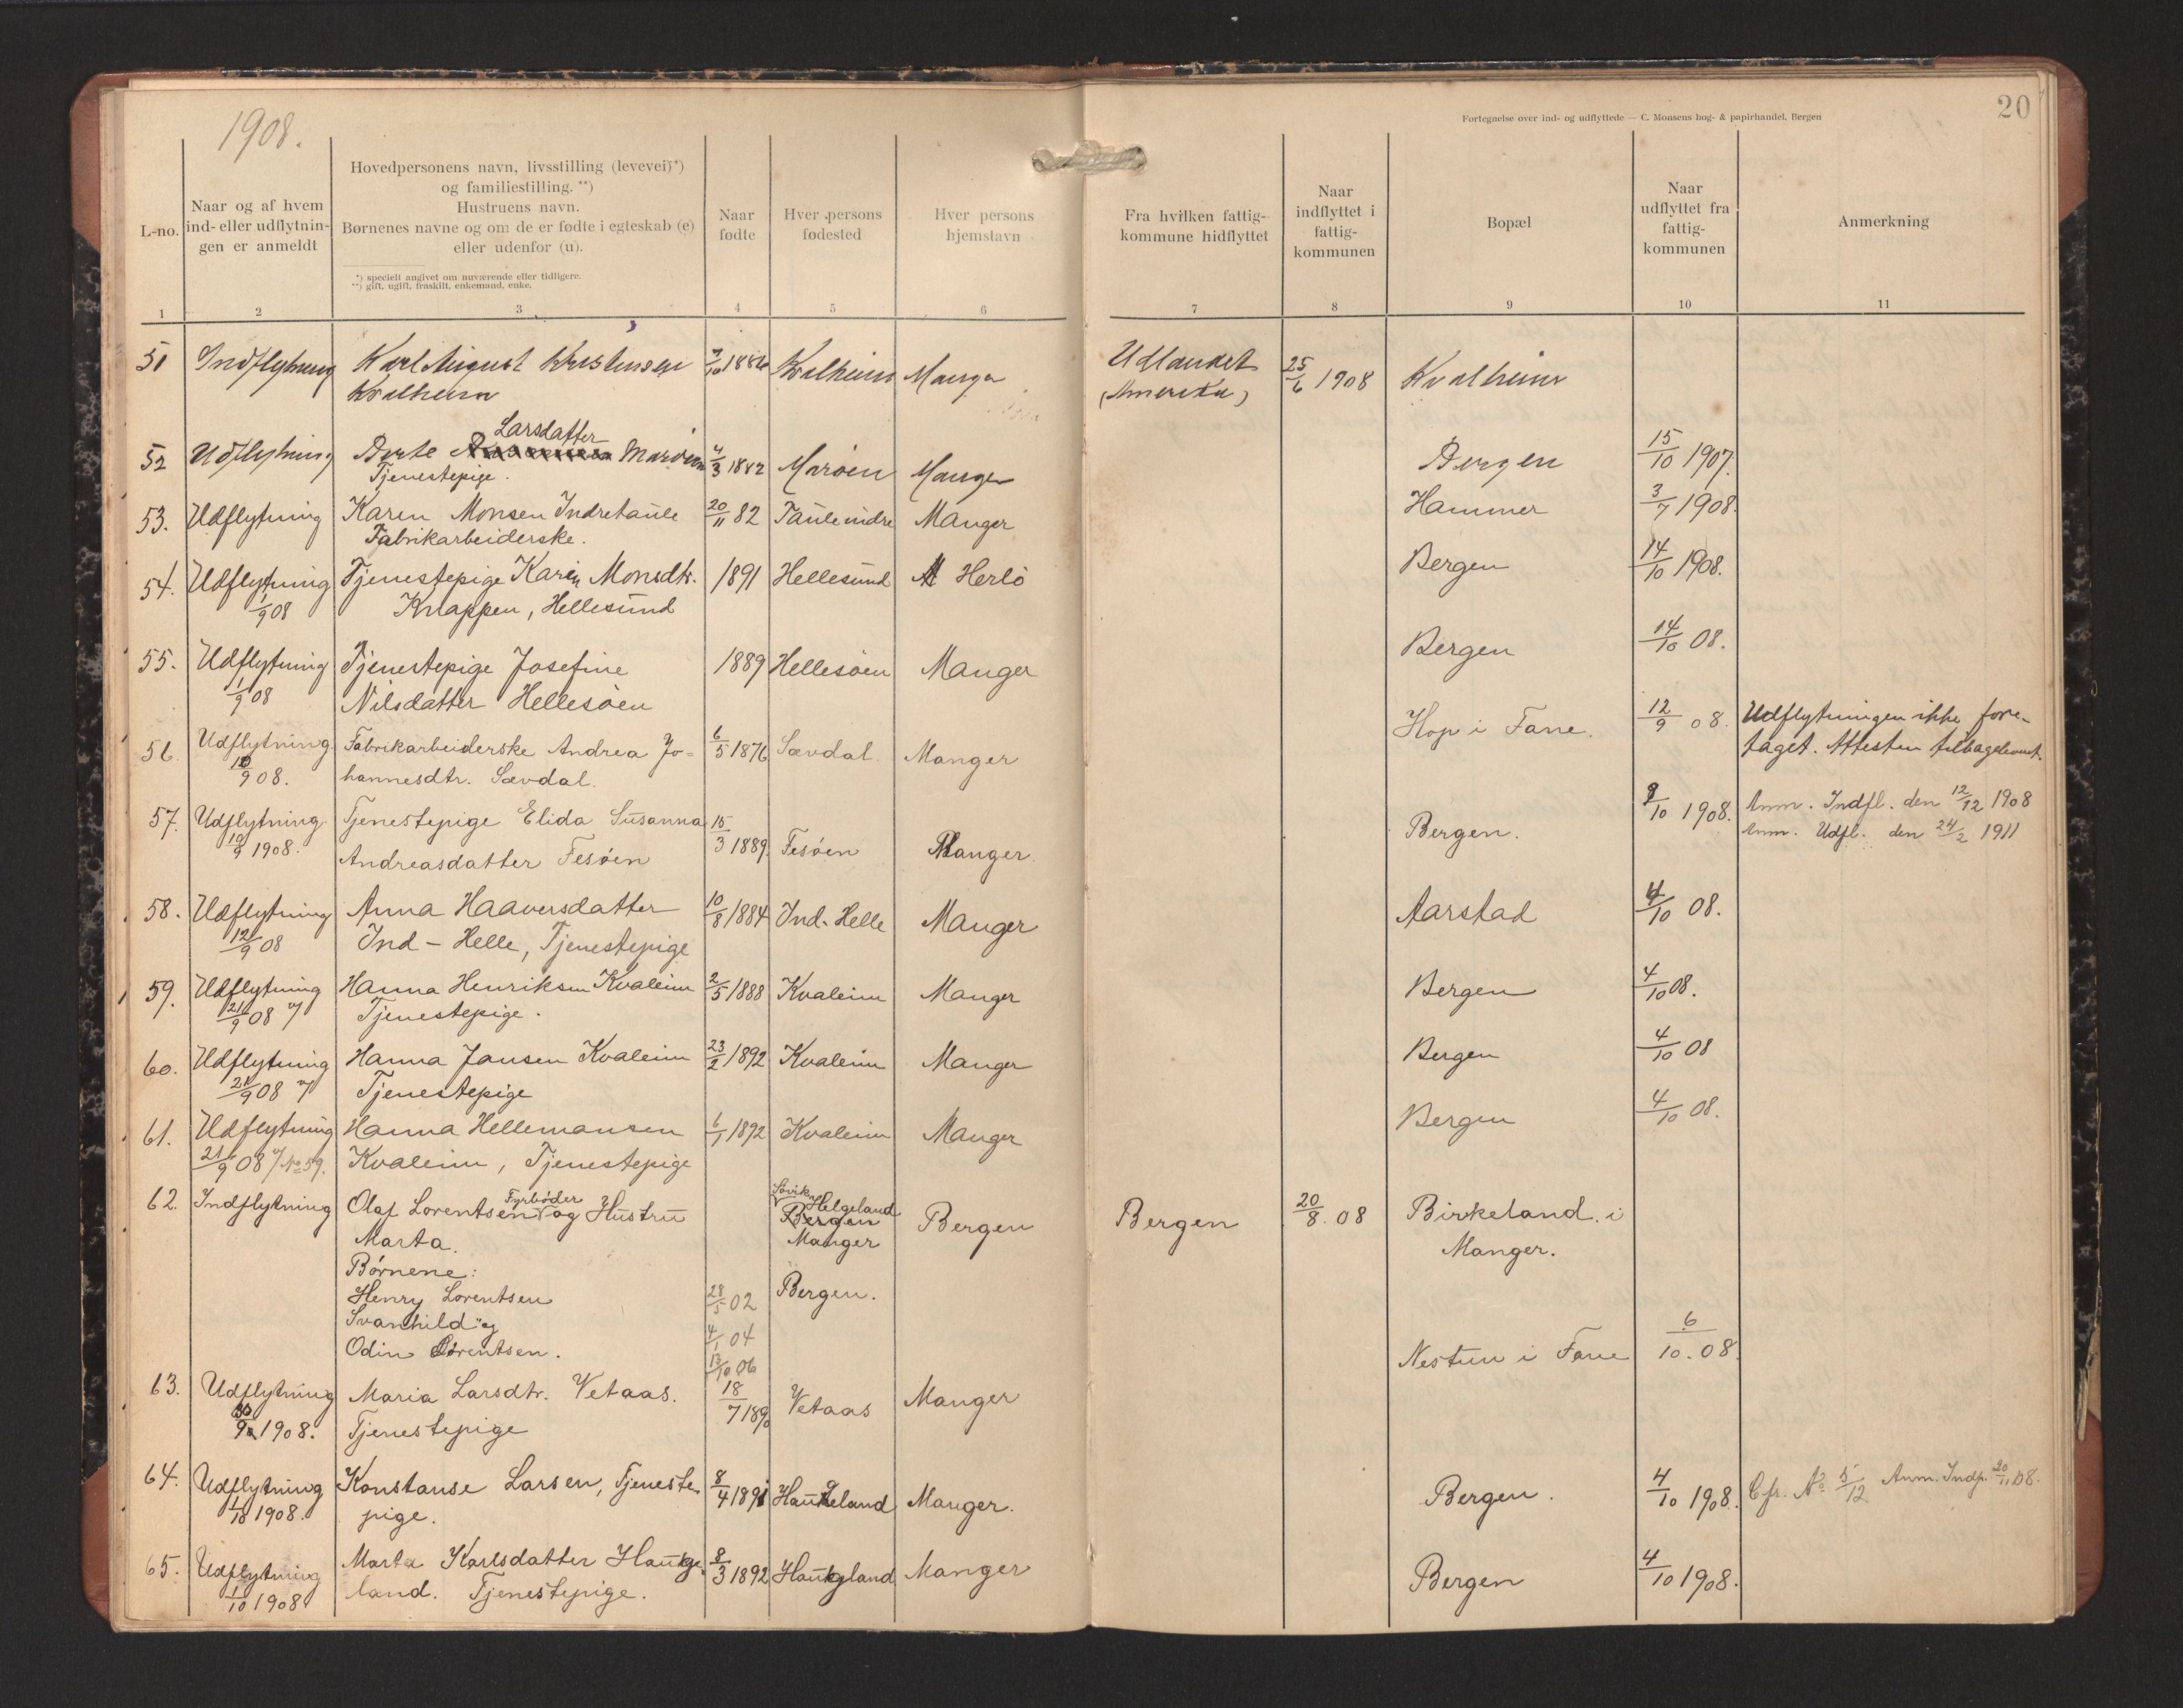 1908.
20
Fortegnelse over ind- og udflyttede — C. Monsens bog- & papirhandel, Bergen
L-no.
Naar og af hvem
ind- eller udflytnin-
gen er anmeldt
Hovedpersonens navn, livsstilling (levevei)*)
og familiestilling. **)
Hustruens navn.
Børnenes navne og om de er fødte i egteskab (e)
eller udenfor (u).
*) specielt angivet om nuværende eller tidligere.
**) gift, ugift, fraskilt, enkemand, enke.
Naar
fødte
Hver persons
fødested
Hver persons
hjemstavn
Fra hvilken fattig-
kommune hidflyttet
Naar
indflyttet i
fattig-
kommunen
Bopæl
Naar
udflyttet fra
fattig-
kommunen
Anmerkning
1 2 3 4 5 6 7 8 9 10 11
51 Indflytning Karl August Kristensen 7/10 1886 Kvalheim Manger Udlandet 25/6 1908 Kvalheim
Kvalheim (Amerika)
Larsdatter
52 Udflytning Berte Marøen 4/3 1882 Marøen Manger Bergen 15/10 1907.
Tjenestepige.
53. Udflytning Karen Monsen Indretaule 20/11 82 Taule indre Manger Hammer 3/7 1908.
Fabrikarbeiderske.
54. Udflytning Tjenestepige Karin Monsdtr. 1891 Hellesund Herlö Bergen 14/10 1908.
1/9 08 Knappen, Hellesund
55. Udflytning Tjenestepige Josefine 1889 Hellesöen Manger Bergen 14/10 08.
1/9 08 Nilsdatter Hellesöen
56. Udflytning Fabrikarbeiderske Andrea Jo= 6/5 1876 Sævdal Manger Hop i Fane. 12/9 08. Udflytningen ikke fore-
9 08. hannesdtr. Sævdal. taget. Attesten tilbagelevert.
57. Udflytning Tjenestepige Elida Susanna 15/3 1889. Fesöen Manger. Bergen. 9/10 1908. Anm. Indfl. den 12/12 1908
10/9 1908. Andreasdatter Fesöen Anm. Udfl. den 24/2 1911
58. Udflytning Anna Haaversdatter 10/8 1884 Ind-Helle Manger Aarstad 4/10 08.
12/9 08 Ind-Helle, Tjenestepige
59. Udflytning Hanna Henriksen Kvaleim 2/5 1888 Kvaleim Manger Bergen 4/10 08.
21/9 08 Tjenestepige.
60. Udflytning Hanna Jansen Kvaleim 23/2 1892 Kvaleim Manger Bergen 4/10 08
21/9 08 Tjenestepige
61. Udflytning Hanna Hellemansen 6/1 1892 Kvaleim Manger Bergen 4/10 08.
21/9 08 No 59. Kvaleim, Tjenestepige
62. Indflytning Olaf Lorentsen Fyrböder og Hustru Sövik Helgeland Bergen Bergen 20/8. 08 Birkeland i
Bergen
Marta. Manger Manger.
Börnene:
Henry Lorentsen 28/5 02 Bergen.
Svanhild og 4/1 04
Odin Lorentsen. 13/10 06
63. Udflytning Maria Larsdtr. Vetaas. 18/7 1890 Vetaas Manger Nestun i Fane 6/10. 08.
30/9 1908. Tjenestepige
64. Udflytning Konstanse Larsen, Tjeneste- 8/4 1891 Haukeland Manger. Bergen. 4/10 1908. Cfr. No 5/12 Anm. Indfl. 20/11 08.
1/10 1908. pige.
65. Udflytning Marta Karlsdatter Haukge- 8/3 1892 Haukgland Manger Bergen 4/10 1908.
1/10 1908 land. Tjenestepige.